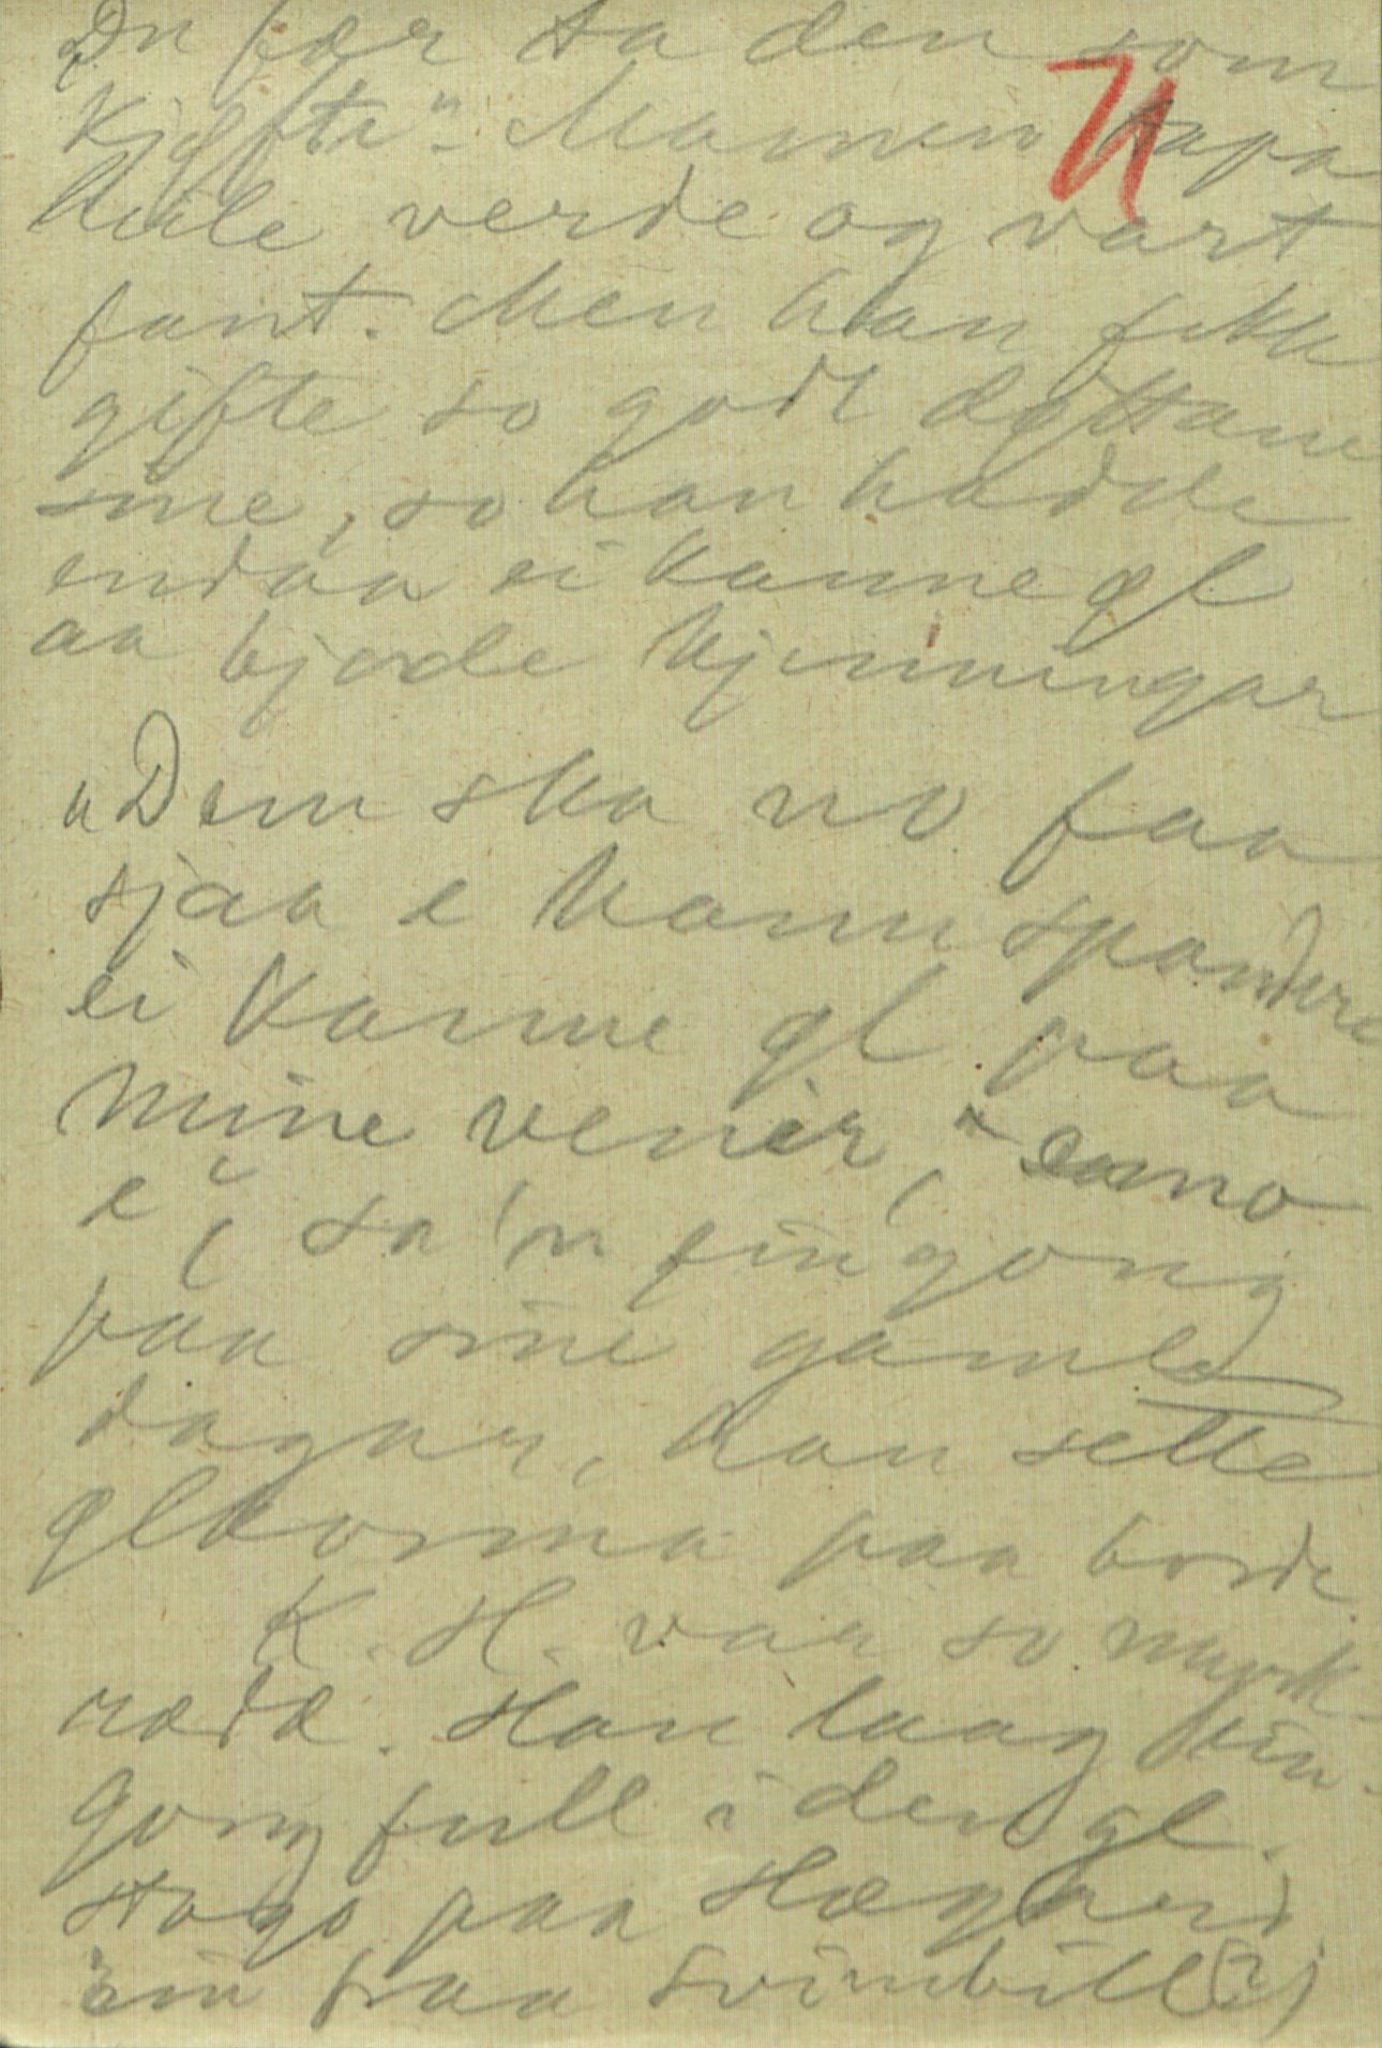 Du fær ta den som
kjefta". Mannen tapa
heile verde og vart
fant. Men han fekk
gifte so godt døttane
sine, so han hadde
endaa ei kanne øl
aa bjode kjenningar
"Dem ska no faa
sjaa e kann spandere
ei kanne øl paa
mine vener, enno
e", sa 'n ein gong
paa sine gamle
dagar, han sette
ølkanna paa bordet.
K. H. var so myrk-
rædd. Han laag ein-
gong full i den gl.
stogo paa Hægard
ein fraa Svimbill (?)